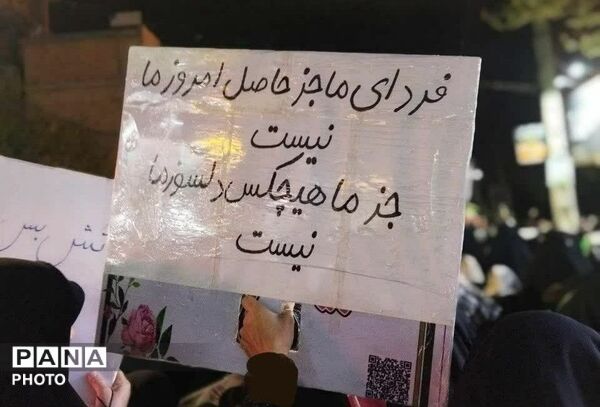 فردای ما جز حاصل امروز ما
نیست
جز ما هیچکس دلسوز ما
نیست
PANA
PHOTO